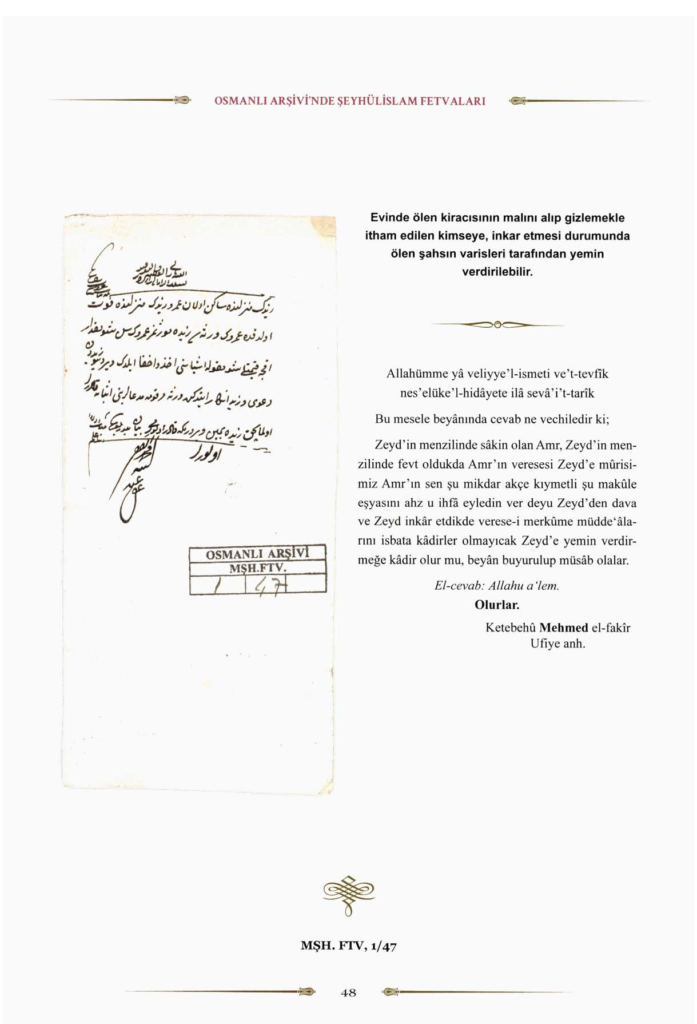 OSMANLI ARŞİVİ'NDE ŞEYHÜLİSLAM FETVALARI
Evinde ölen kiracısının malını alıp gizlemekle
itham edilen kimseye, inkar etmesi durumunda
ölen şahsın varisleri tarafından yemin
verdirilebilir.
Allahümme yâ veliyye'l-ismeti ve't-tevfîk
nes'elüke'l-hidâyete ilâ sevâ'i't-tarîk
Bu mesele beyânında cevab ne vechiledir ki;
Zeyd'in menzilinde sâkin olan Amr, Zeyd'in men-
zilinde fevt oldukda Amr'ın veresesi Zeyd'e mûrisi-
miz Amr'ın sen şu mikdar akçe kıymetli şu makûle
eşyasını ahz u ihfâ eyledin ver deyu Zeyd'den dava
ve Zeyd inkâr etdikde verese-i merkûme müdde‘âla-
rını isbata kâdirler olmayıcak Zeyd'e yemin verdir-
meğe kâdir olur mu, beyân buyurulup müsâb olalar.
El-cevab: Allahu a‘lem.
Olurlar.
Ketebehû Mehmed el-fakîr
Ufiye anh.
زيدك منزلنده ساكن اولان عمرو زيدك منزلنده فوت
اولدقده عمروك ورثه سى زيده مورثمز عمروك سن شو مقدار
اولورلر
OSMANLI ARŞİVİ
MŞH.FTV.
1 47
MŞH. FTV, 1/47
48